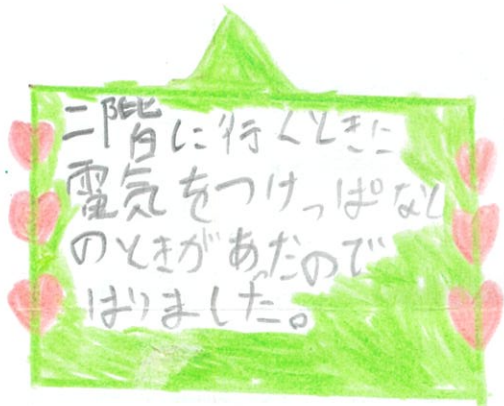 二階に行くときに
電気をつけっぱなし
のときがあったので
はりました。